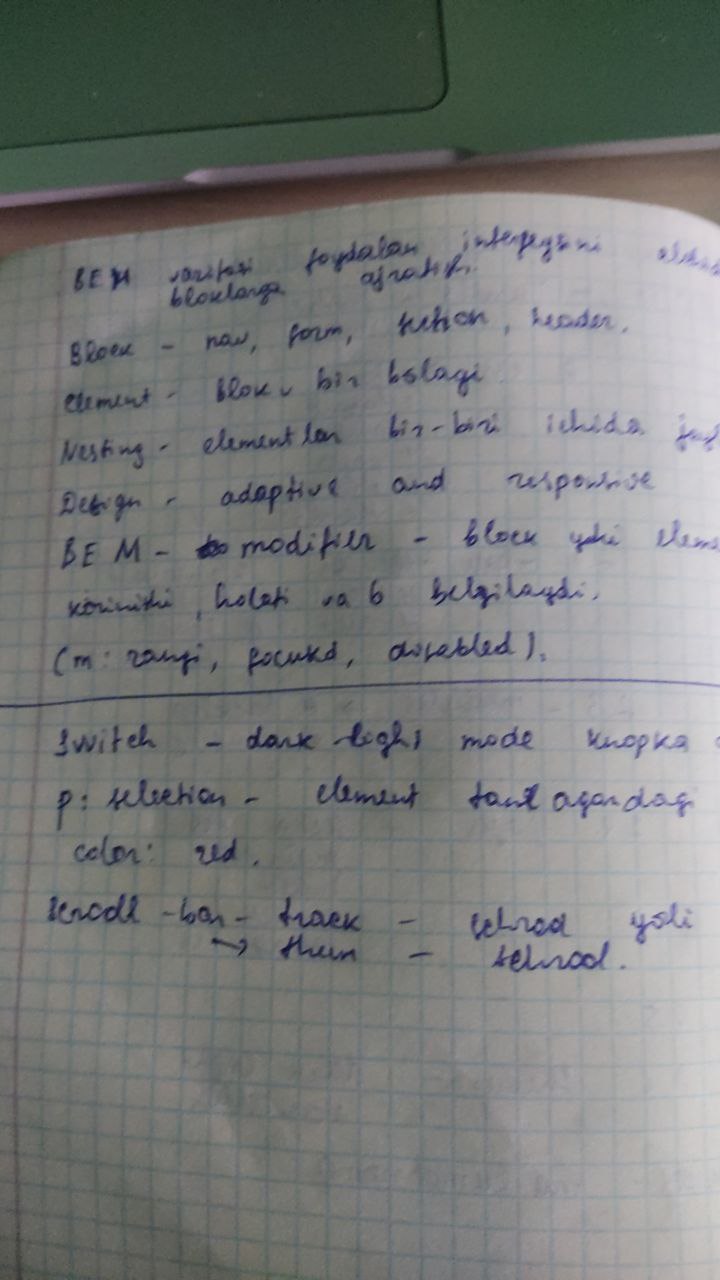 BEM vazifasi foydalan interfeysini
bloklarga ajratish.
Block - nav, form, section, header.
element - blok bir bolagi
Nesting - elementlar bir-biri ichida
Design - adaptive and responsive
BEM - modifier - block yoki
korinishi, holati va b belgilaydi.
(m: rangi, focusd, disabled).
Switch - dark light mode knopka
p: selection - element
color: red.
scroll -bar - track - yoli
→ thum -